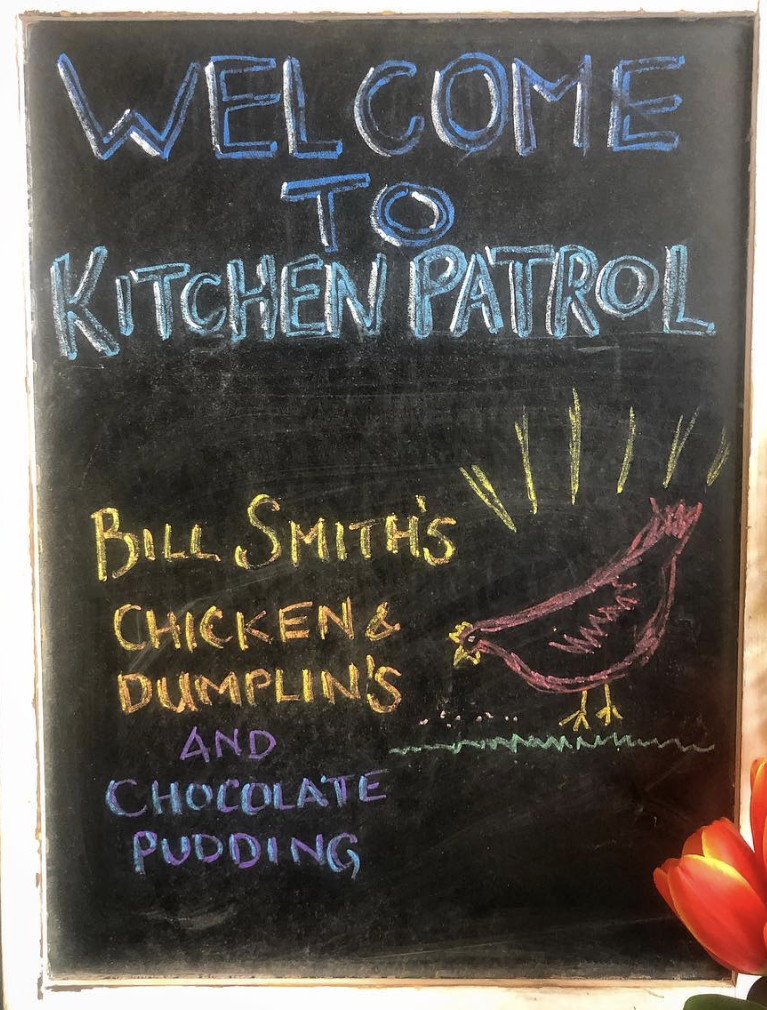 WELCOME
TO
KITCHEN PATROL
BILL SMITH'S
CHICKEN &
DUMPLIN'S
AND
CHOCOLATE
PUDDING